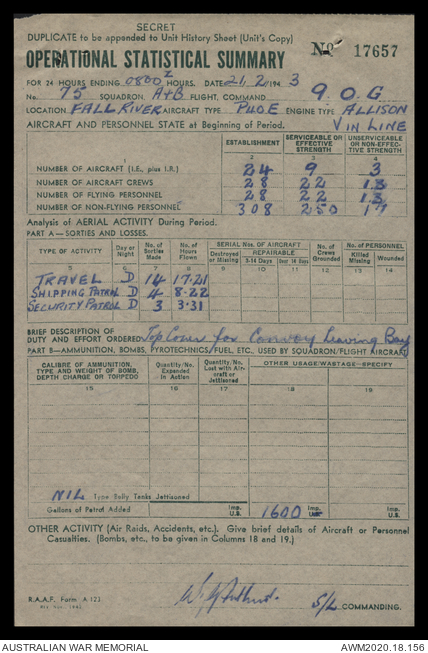 SECRET
DUPLICATE to be appended to Unit History Sheet (Unit's Copy)
OPERATIONAL STATISTICAL SUMMARY No 17657
FOR 24 HOURS ENDING 0800Z HOURS. DATE 21.2.1943
No. 75 SQUADRON, A+B FLIGHT, COMMAND 9.O.G
LOCATION FALL RIVER AIRCRAFT TYPE P40E ENGINE TYPE ALLISON
AIRCRAFT AND PERSONNEL STATE at Beginning of Period. V IN LINE
ESTABLISHMENT SERVICEABLE OR EFFECTIVE STRENGTH UNSERVICEABLE OR NON-EFFECTIVE STRENGTH
1 2 3 4
NUMBER OF AIRCRAFT (I.E., plus I.R.) 24 9 3
NUMBER OF AIRCRAFT CREWS 28 22 13
NUMBER OF FLYING PERSONNEL 28 22 13
NUMBER OF NON-FLYING PERSONNEL 308 250 17
Analysis of AERIAL ACTIVITY During Period.
PART A—SORTIES AND LOSSES.
TYPE OF ACTIVITY Day or Night No. of Sorties Made No. of Hours Flown SERIAL NOS. OF AIRCRAFT Destroyed or Missing REPAIRABLE 3-14 Days Over 14 Days No. of Crews Grounded No. of PERSONNEL Killed Missing Wounded
5 6 7 8 9 10 11 12 13 14
TRAVEL D 14 17.21
SHIPPING PATROL D 4 8.22
SECURITY PATROL D 3 3.31
BRIEF DESCRIPTION OF
DUTY AND EFFORT ORDERED Top Cover for Convoy Leaving Bay
PART B—AMMUNITION, BOMBS, PYROTECHNICS, FUEL, ETC. USED BY SQUADRON/FLIGHT AIRCRAFT
CALIBRE OF AMMUNITION, TYPE AND WEIGHT OF BOMB, DEPTH CHARGE OR TORPEDO Quantity/No. Expended in Action Quantity/No. Lost with Aircraft or Jettisoned OTHER USAGE/WASTAGE—SPECIFY
15 16 17 18 19
NIL Type Belly Tanks Jettisoned
Gallons of Petrol Added Imp. U.S. 1600 Imp. U.S. Imp. U.S.
OTHER ACTIVITY (Air Raids, Accidents, etc.). Give brief details of Aircraft or Personnel
Casualties. (Bombs, etc., to be given in Columns 18 and 19.)
S/L COMMANDING.
R.A.A.F. Form A.122
AUSTRALIAN WAR MEMORIAL AWM2020.18.156